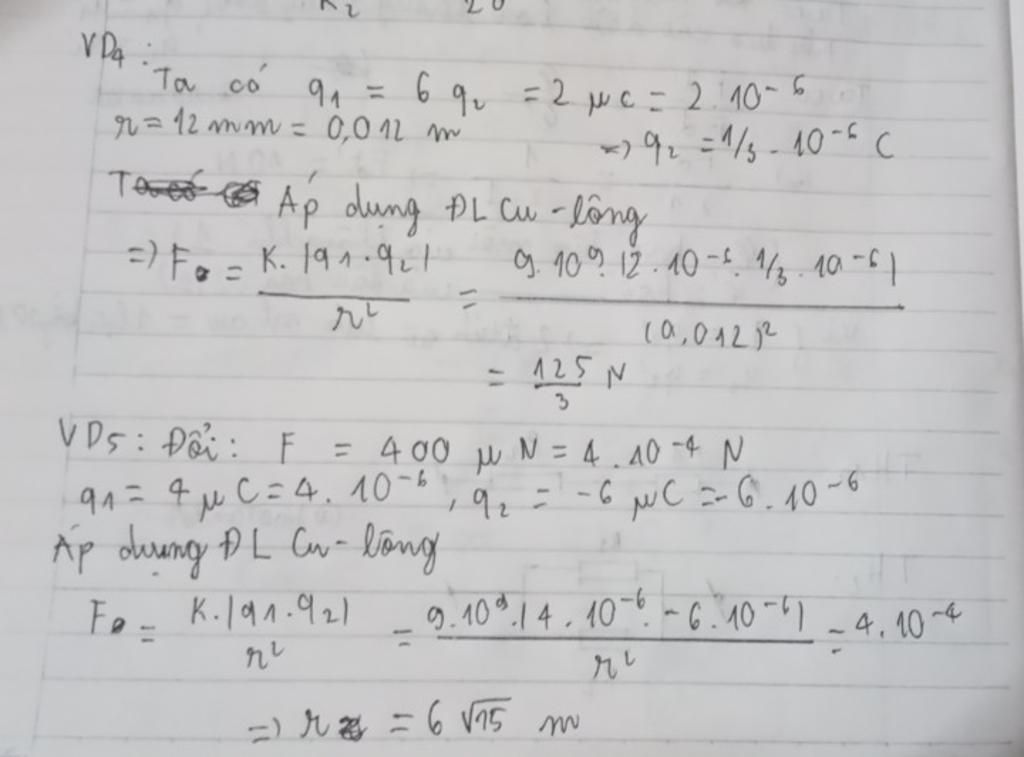 K₂ 20
VD4 :
Ta có q₁ = 6 q₂ = 2 μC = 2.10⁻⁶
r = 12 mm = 0,012 m => q₂ = 1/3 . 10⁻⁶ C
Áp dụng ĐL Cu-lông
=> F = K.|q₁.q₂| / r² = 9.10⁹.|2.10⁻⁶.1/3.10⁻⁶| / (0,012)²
= 125/3 N
VD5 : Đổi : F = 400 μN = 4.10⁻⁴ N
q₁ = 4 μC = 4.10⁻⁶, q₂ = -6 μC = -6.10⁻⁶
Áp dụng ĐL Cu-lông
F = K.|q₁.q₂| / r² = 9.10⁹.|4.10⁻⁶.-6.10⁻⁶| / r² = 4.10⁻⁴
=> r = 6√15 m